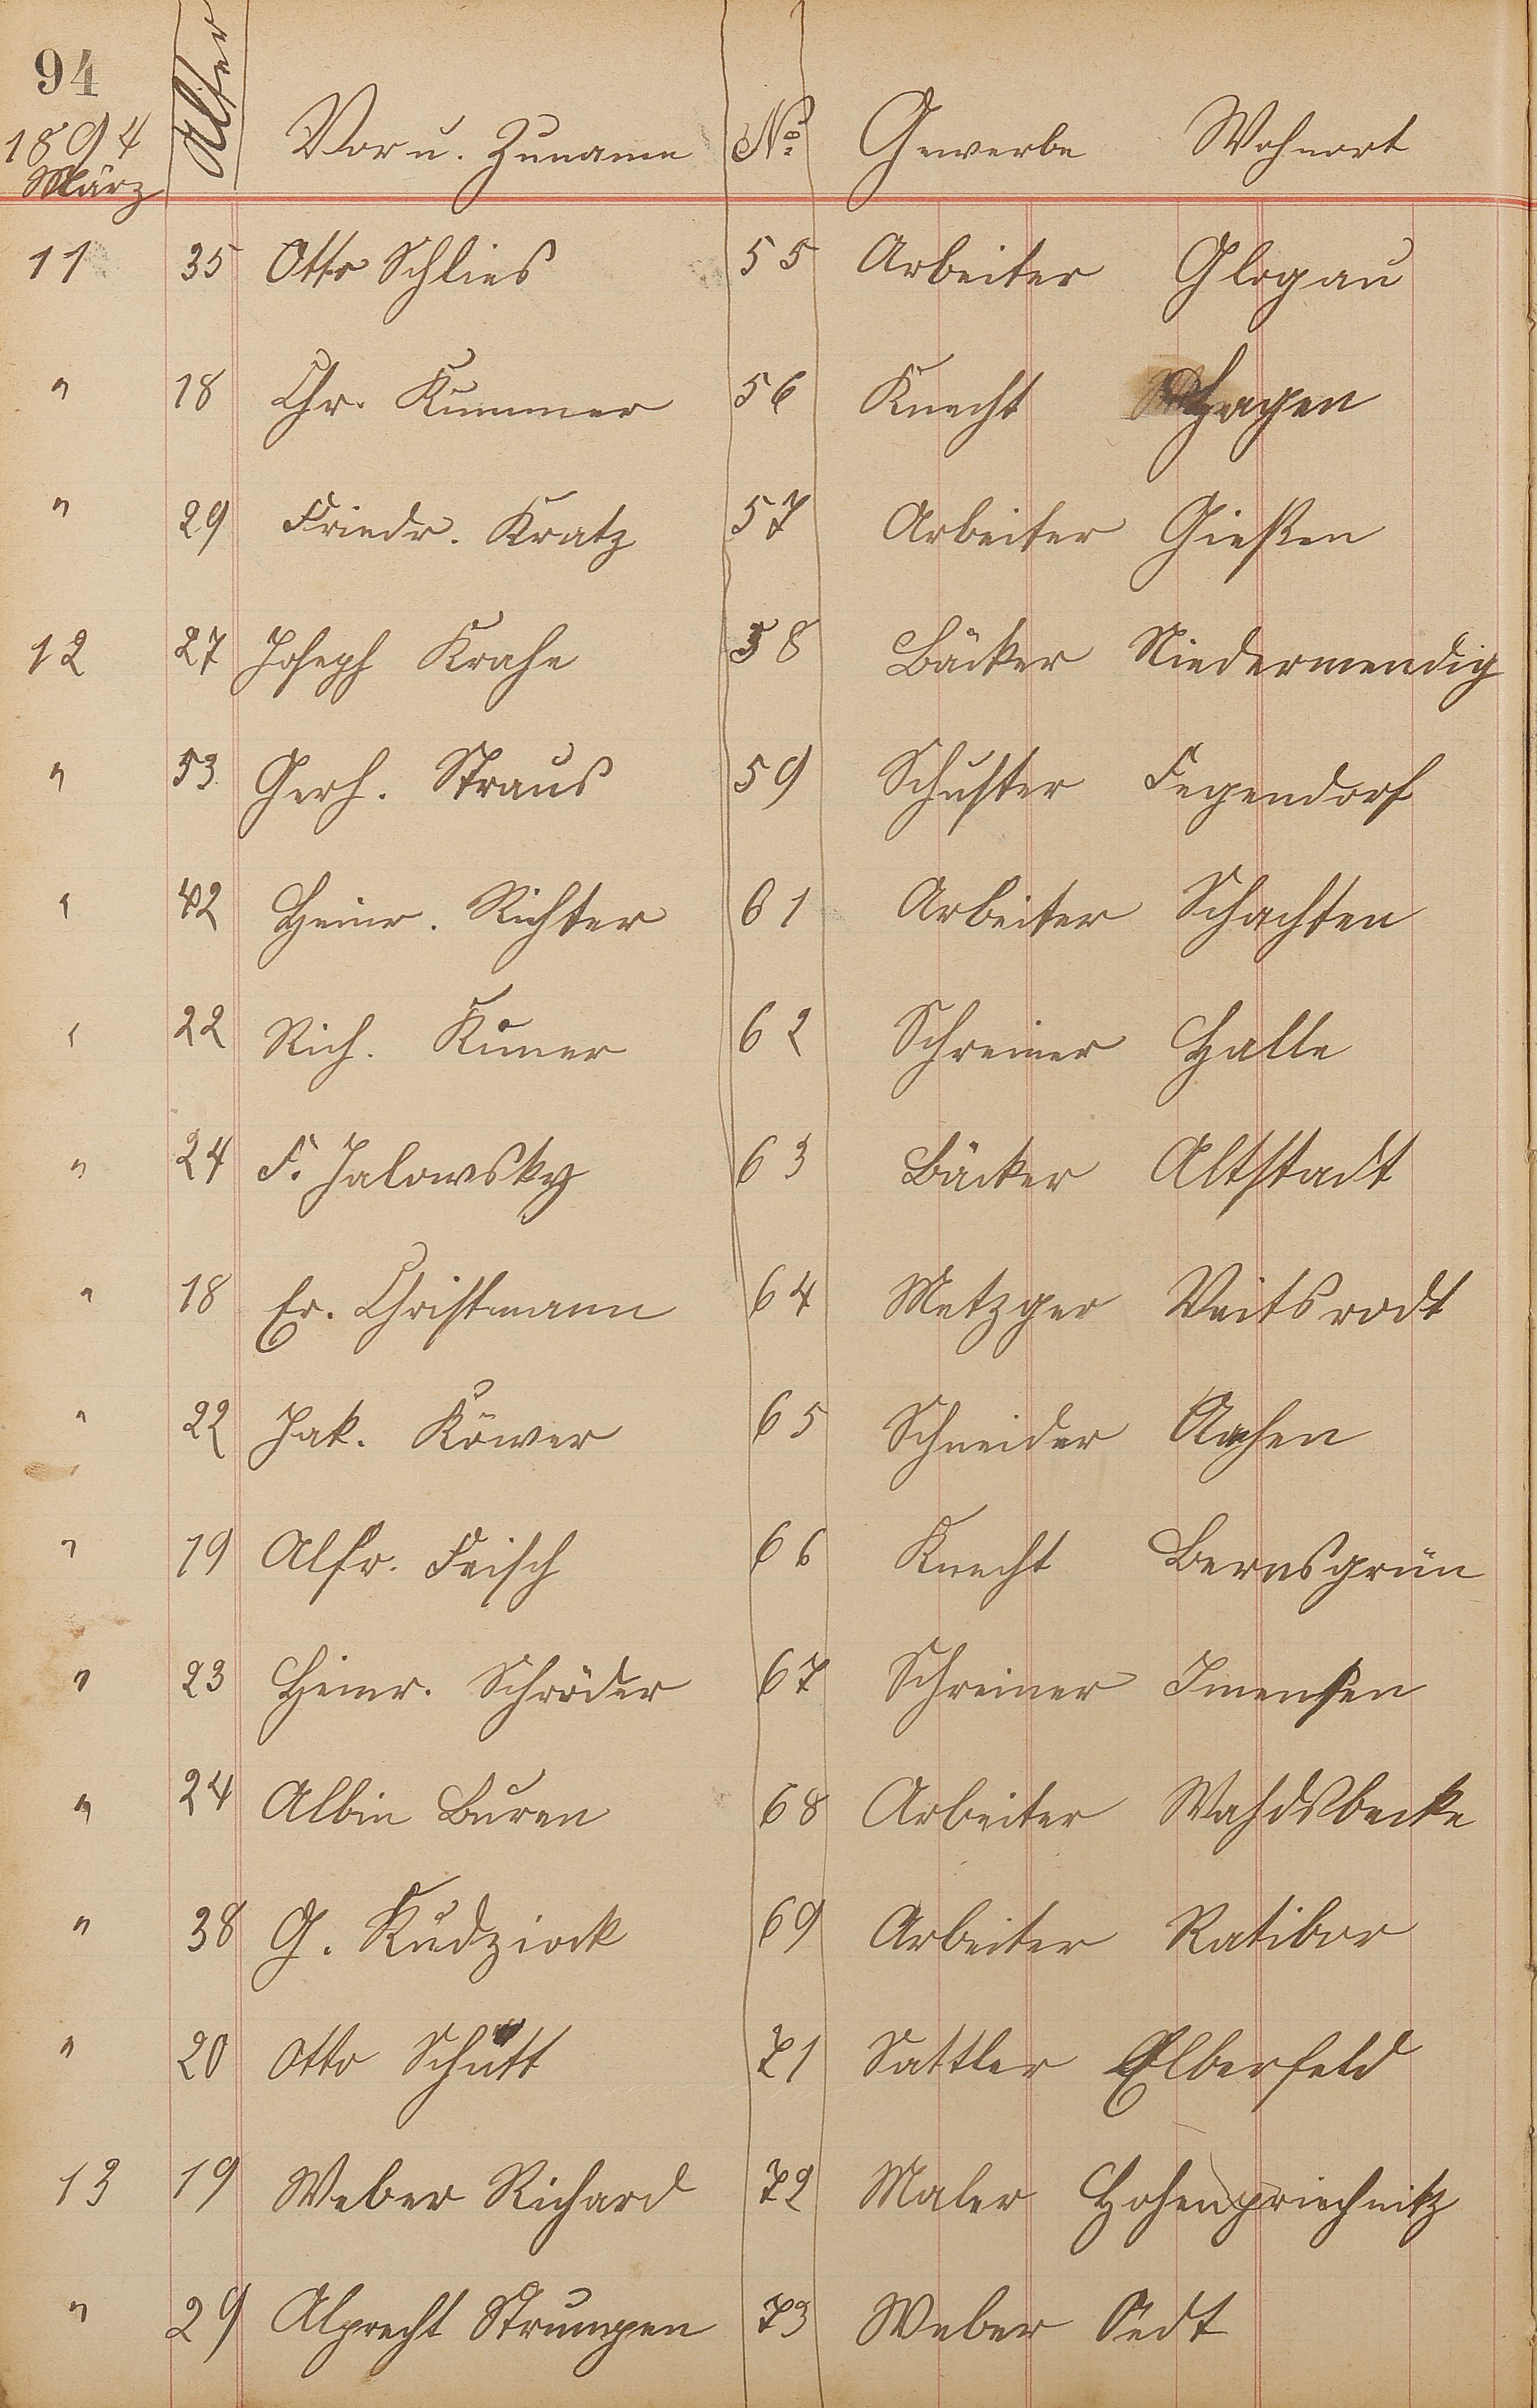 94
1894 Alter Vor u. Zuname No. Gewerbe Wohnort
März
11 35 Otto Schlies 55 Arbeiter Glogau
" 18 Chr. Kummer 56 Knecht Hagen
" 29 Friedr. Kratz 57 Arbeiter Gießen
12 27 Joseph Krahe 58 Bäcker Niedermendig
" 53 Gerh. Straus 59 Schuster Fegendorf
" 42 Heinr. Richter 61 Arbeiter Schachten
" 22 Rich. 62 Schreiner Halle
" 24 F. Jalowsky 63 Bäcker Altstadt
" 18 Er. Christmann 64 Metzger Veitsrodt
" 22 Jak. Köwer 65 Schneider Aachen
" 19 Alfr. Feisch 66 Knecht Bernsgrün
" 23 Heinr. Schröder 67 Schreiner Imensen
" 24 Albin Buren 68 Arbeiter Wahdsbecke
" 38 G. Kudziock 69 Arbeiter Ratibor
" 20 Otto Schütt 71 Sattler Elberfeld
13 19 Weber Richard 72 Maler Hohenpriechnitz
" 29 Alprecht Strumpen 73 Weber Oedt